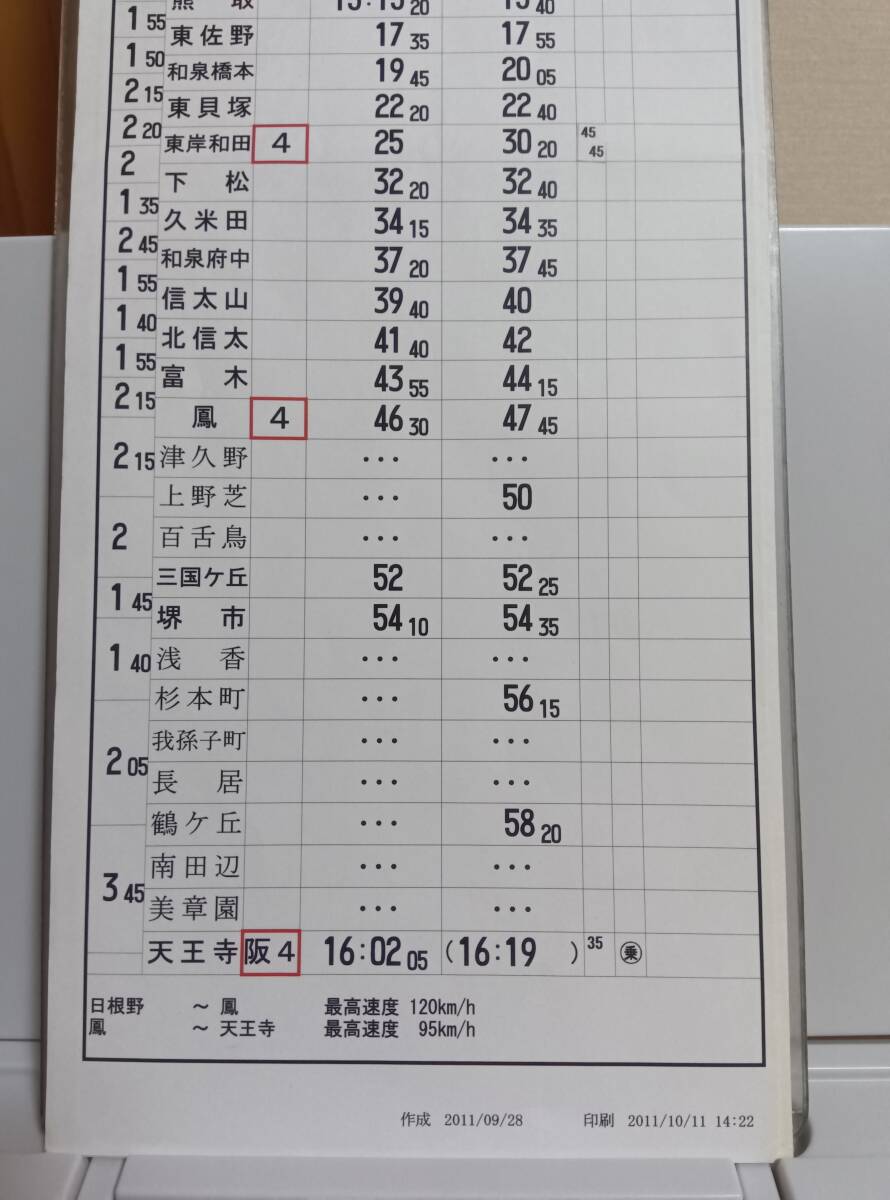 熊 取 15:15 20 15 40
1 55
東佐野 17 35 17 55
1 50
和泉橋本 19 45 20 05
2 15
東貝塚 22 20 22 40
2 20
東岸和田 4 25 30 20 45 45
2
下 松 32 20 32 40
1 35
久米田 34 15 34 35
2 45
和泉府中 37 20 37 45
1 55
信太山 39 40 40
1 40
北信太 41 40 42
1 55
富 木 43 55 44 15
2 15
鳳 4 46 30 47 45
2 15
津久野 ・・・ ・・・
上野芝 ・・・ 50
2
百舌鳥 ・・・ ・・・
三国ケ丘 52 52 25
1 45
堺 市 54 10 54 35
1 40
浅 香 ・・・ ・・・
杉本町 ・・・ 56 15
2 05
我孫子町 ・・・ ・・・
長 居 ・・・ ・・・
鶴ケ丘 ・・・ 58 20
3 45
南田辺 ・・・ ・・・
美章園 ・・・ ・・・
天王寺 阪4 16:02 05 (16:19 ) 35 乗
日根野 ～ 鳳 最高速度 120km/h
鳳 ～ 天王寺 最高速度 95km/h
作成 2011/09/28 印刷 2011/10/11 14:22